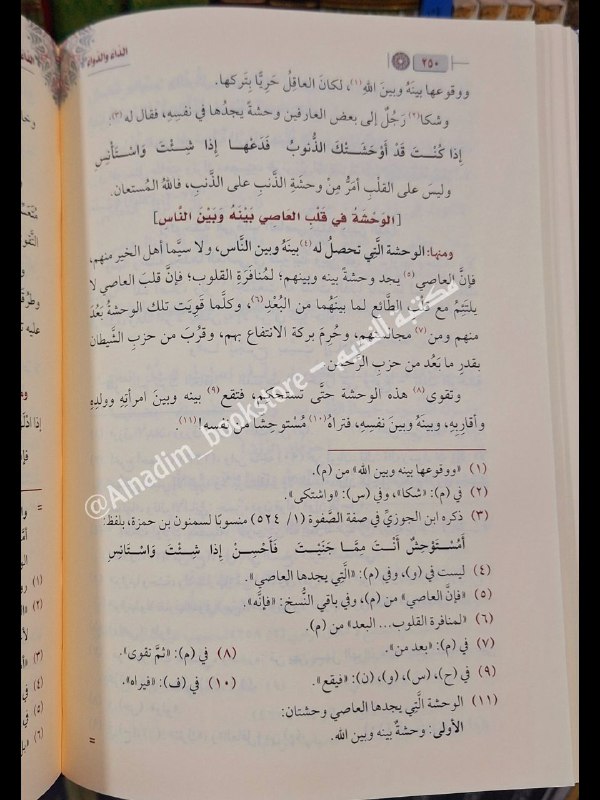 ٢٥٠
الداء والدواء
ووقوعها بينَهُ وبينَ اللهِ(١)، لكانَ العاقلُ حَرِيًّا بِتَركها.
وشكا(٢) رَجُلٌ إلى بعض العارفين وحشةً يجدُها في نفسِهِ، فقال له(٣):
إِذَا كُنْتَ قَدْ أَوْحَشَتْكَ الذُّنوبُ فَدَعْهَا إِذَا شِئْتَ وَاسْتَأْنِسِ
وليسَ على القلبِ أمَرُّ مِنْ وحشةِ الذَّنبِ على الذَّنبِ، فاللهُ المُستعان.
[الوَحْشَةُ فِي قَلْبِ العَاصِي بَيْنَهُ وَبَيْنَ النَّاسِ]
ومنها: الوحشة الَّتِي تحصلُ له(٤) بينَهُ وبين النَّاس، ولا سيَّما أهل الخير منهم،
فإنَّ العاصي(٥) يجد وحشةً بينه وبينهم؛ لمُنافرَةِ القلوب؛ فإنَّ قلبَ العاصي لا
يلتَئِمُ مع قلب الطَّائع لما بينَهُما من البُعْدِ(٦)، وكلَّما قَوِيَت تلك الوحشةُ بَعُدَ
منهم ومن(٧) مجالستهم، وحُرِمَ بركة الانتفاع بهم، وقَرُبَ من حزبِ الشَّيطان
بقدرِ ما بَعُد من حزب الرَّحمن.
وتقوى(٨) هذه الوحشة حتَّى تستَحكِم، فتقع(٩) بينه وبين امرأتِهِ وولدِهِ
وأقاربِهِ، وبينَهُ وبينَ نفسِهِ، فتراهُ(١٠) مُستوحِشًا من نفسه!(١١).
(١) «ووقوعها بينه وبين الله» من (م).
(٢) في (م): «شكا»، وفي (س): «واشتكى».
(٣) ذكره ابن الجوزيِّ في صفة الصَّفوة (١/ ٥٢٤) منسوبًا لسمنون بن حمزة، بلفظ:
أَمُسْتَوْحِشٌ أَنْتَ مِمَّا جَنَيْتَ فَأَحْسِنْ إِذَا شِئْتَ وَاسْتَانِسِ
(٤) ليست في (و)، وفي (م): «الَّتي يجدها العاصي».
(٥) «فإنَّ العاصي» من (م)، وفي باقي النُّسخ: «فإنَّه».
(٦) «لمنافرة القلوب... البعد» من (م).
(٧) في (م): «بعد من».
(٨) في (م): «ثمَّ تقوى».
(٩) في (ح)، (س)، (و)، (ن): «فيقع».
(١٠) في (ف): «فيراه».
(١١) الوحشة الَّتي يجدها العاصي وحشتان:
الأولى: وحشةٌ بينه وبين الله.
=
@Alnadim_bookstore – مكتبة النديم